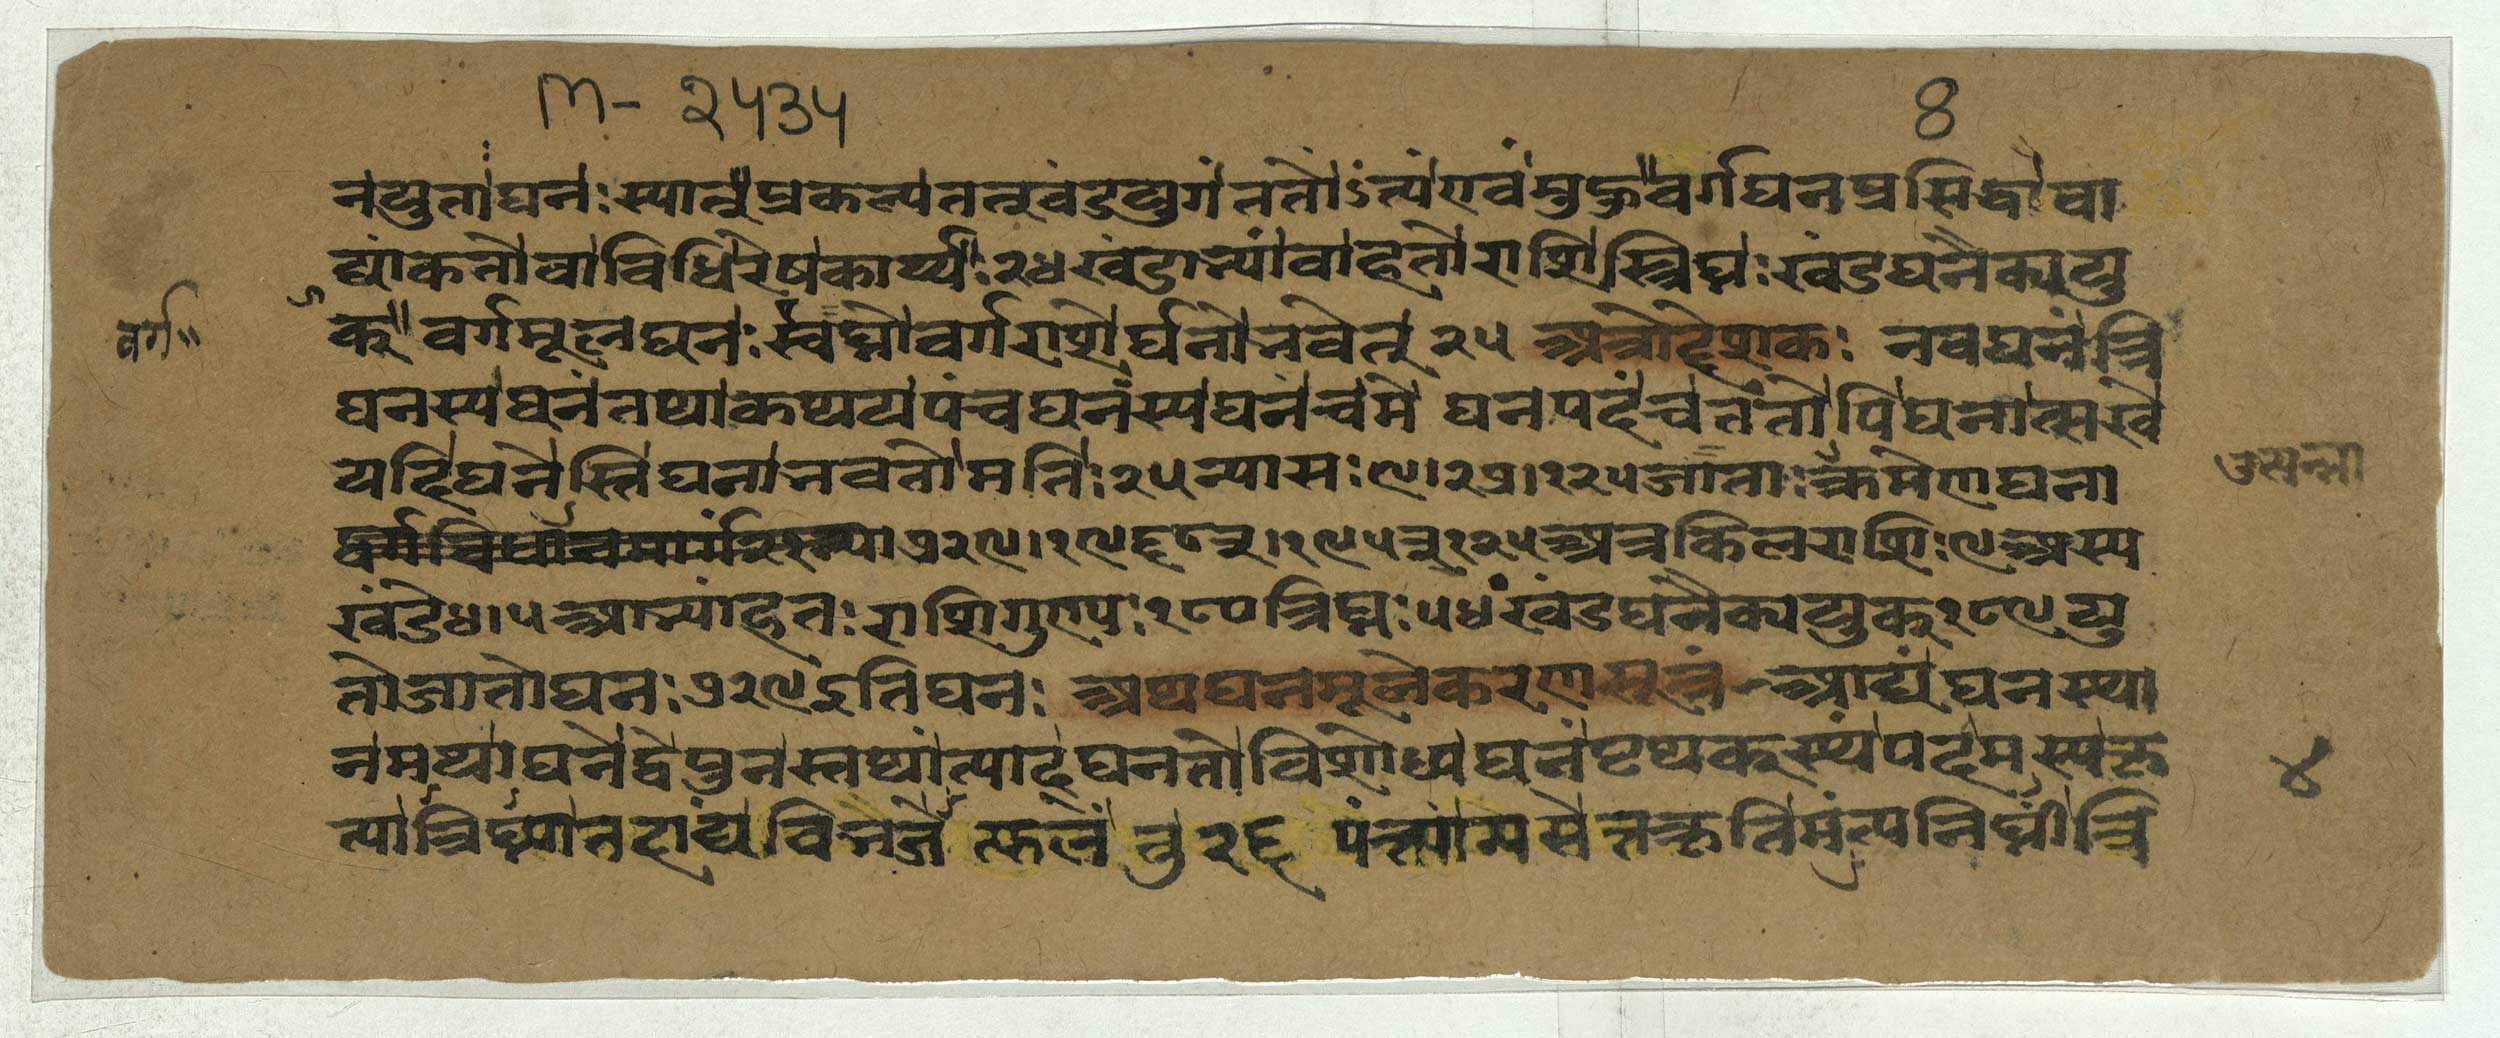 M- २५३५
8
नयुता घनः स्यात् प्रकल्प्य तत् खंडयुगं ततोऽन्त्यं एवं मुहुर्वर्गघनप्रसिद्धावा
द्यांकतो वा विधिरेष कार्य्यः २४ खंडाभ्यां वा हतो राशिस्त्रिघ्नः खंडघनैक्ययु
वर्ग॥
क् वर्गमूलघनः स्वघ्नो वर्गराशेर्घनो भवेत् २५ अत्रोद्देशकः नवघनं त्रि
घनस्य घनं तथा कथय पंचघनस्य घनं च मे घनपदं च ततोपि घनात्सखे
यदि घनेस्ति घना भवतो मतिः २५ न्यासः ९।२७।१२५ जाताः क्रमेण घना
७२९।१९६८३।१९५३१२५ अत्र किल राशिः ९ अस्य
खंडे ४।५ आभ्यां हतः राशि १८० त्रिघ्नः ५४ खंडघनैक्ययुक् १८९ यु
तो जातो घनः ७२९ इति घनः अथ घनमूलेकरणसूत्रं आद्यं घनस्था
नमथाघने द्वे पुनस्तथांत्याद् घनतो विशोध्य घनं पृथक्स्थं पदमस्य कृ
४
त्या त्रिघ्न्या तदाद्यं विभजेत्फलं तु २६ पंक्त्यां न्यसेत्तत्कृतिमंत्यनिघ्नीं त्रि